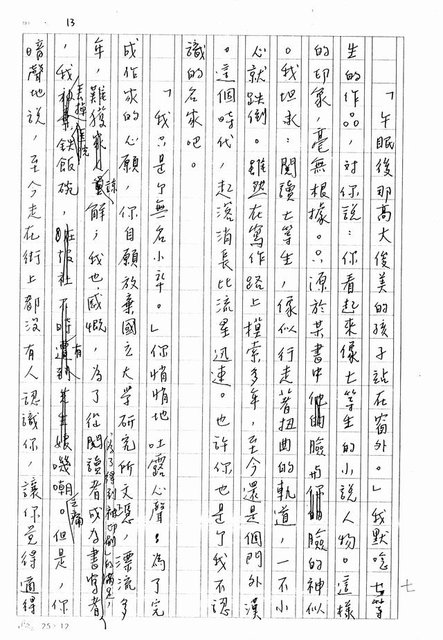 13
「午眠後那高大俊美的孩子站在窗外。」我默唸七等
生的作品，对你說：你看起來像七等生的小說人物。這樣
的印象，毫無根據。只源於某書中的臉与你的臉的神似
。我坦承：閱讀七等生，像似行走著扭曲的軌道，一不小
心就跌倒。雖然在寫作路上摸索多年，至今還是個門外漢
。這個時代，起落消長比流星迅速。也許你也是个我不認
識的名家吧。
「我只是个無名小卒。」你悄悄地吐露心聲：為了完
成作家的心願，你自願放棄國立大學研究所文憑，漂流多
年，難獲諒解；我也感慨，為了從閱讀者成為書寫者
，我鉄飯碗，時有嘲。但是，你
喑聲地說，至今走在街上都没有人認識你，讓你覺得適得
七
25×12